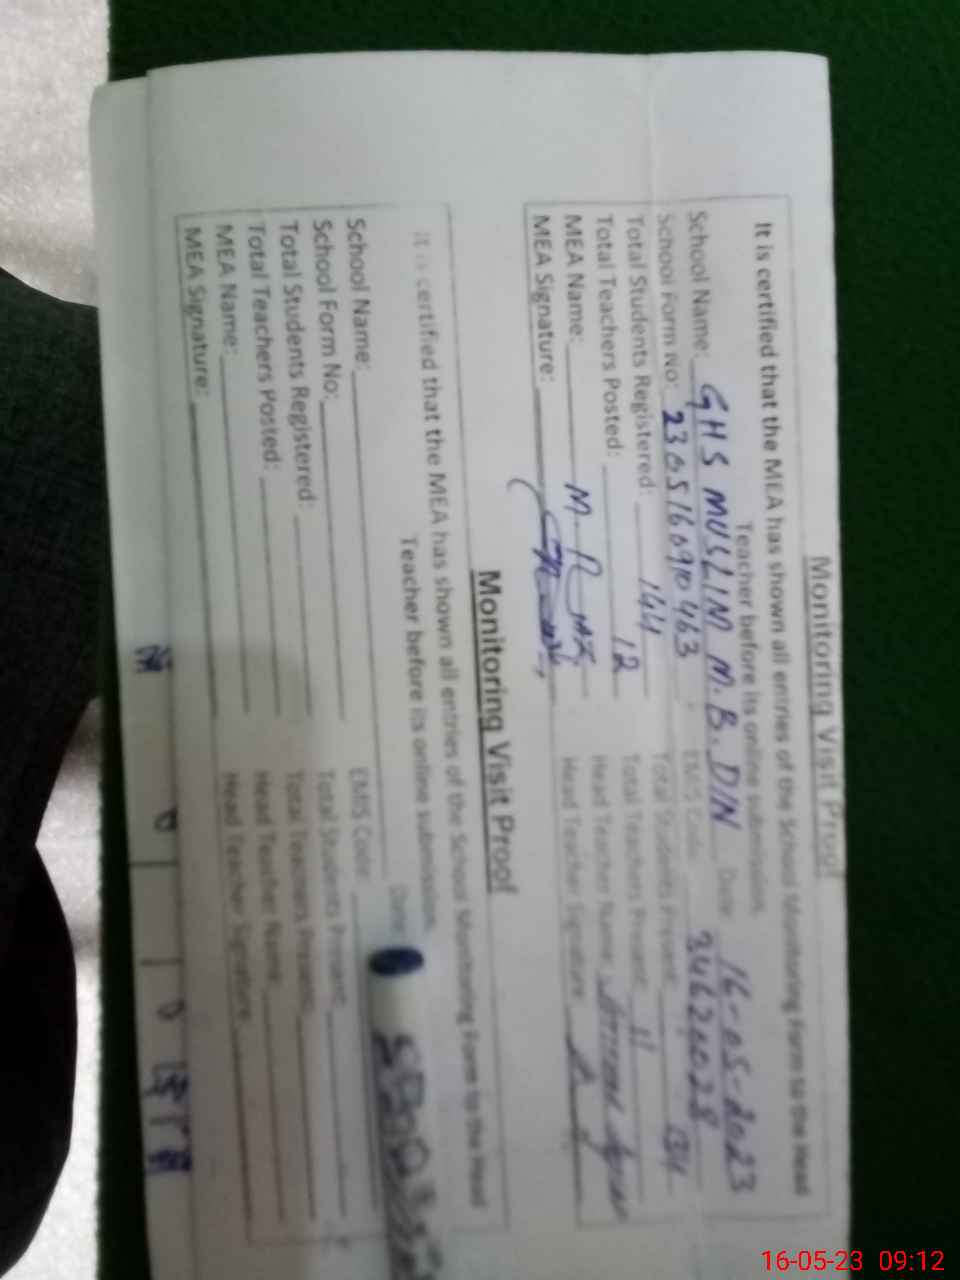 Monitoring Visit Proof
It is certified that the MEA has shown all entries of the School Monitoring Form to the Head
Teacher before its online submission.
Date 16-05-2023
School Name: GHS MUSLIM M.B. DIN
School Form No: 2305160910463 EMIS Code: 34621028
Total Students Registered: 144 Total Students Present: 134
Total Teachers Posted: 12 Total Teachers Present: 11
MEA Name: M. Head Teacher Name
MEA Signature: Head Teacher Signature
Monitoring Visit Proof
It is certified that the MEA has shown all entries of the School Monitoring Form to the Head
Teacher before its online submission.
Date
School Name: EMIS Code:
School Form No: Total Students Present:
Total Students Registered: Total Teachers Present:
Total Teachers Posted: Head Teacher Name:
MEA Name: Head Teacher Signature:
MEA Signature:
16-05-23 09:12